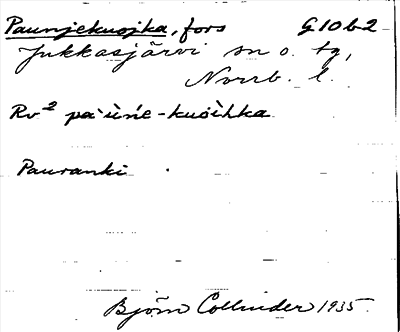 Paunjekuojka, fors G10b2
Jukkasjärvi sn o. tg,
Norrb. l.
Rv² pa ùńe-kuoìhka
Pauranki
Björn Collinder 1935.